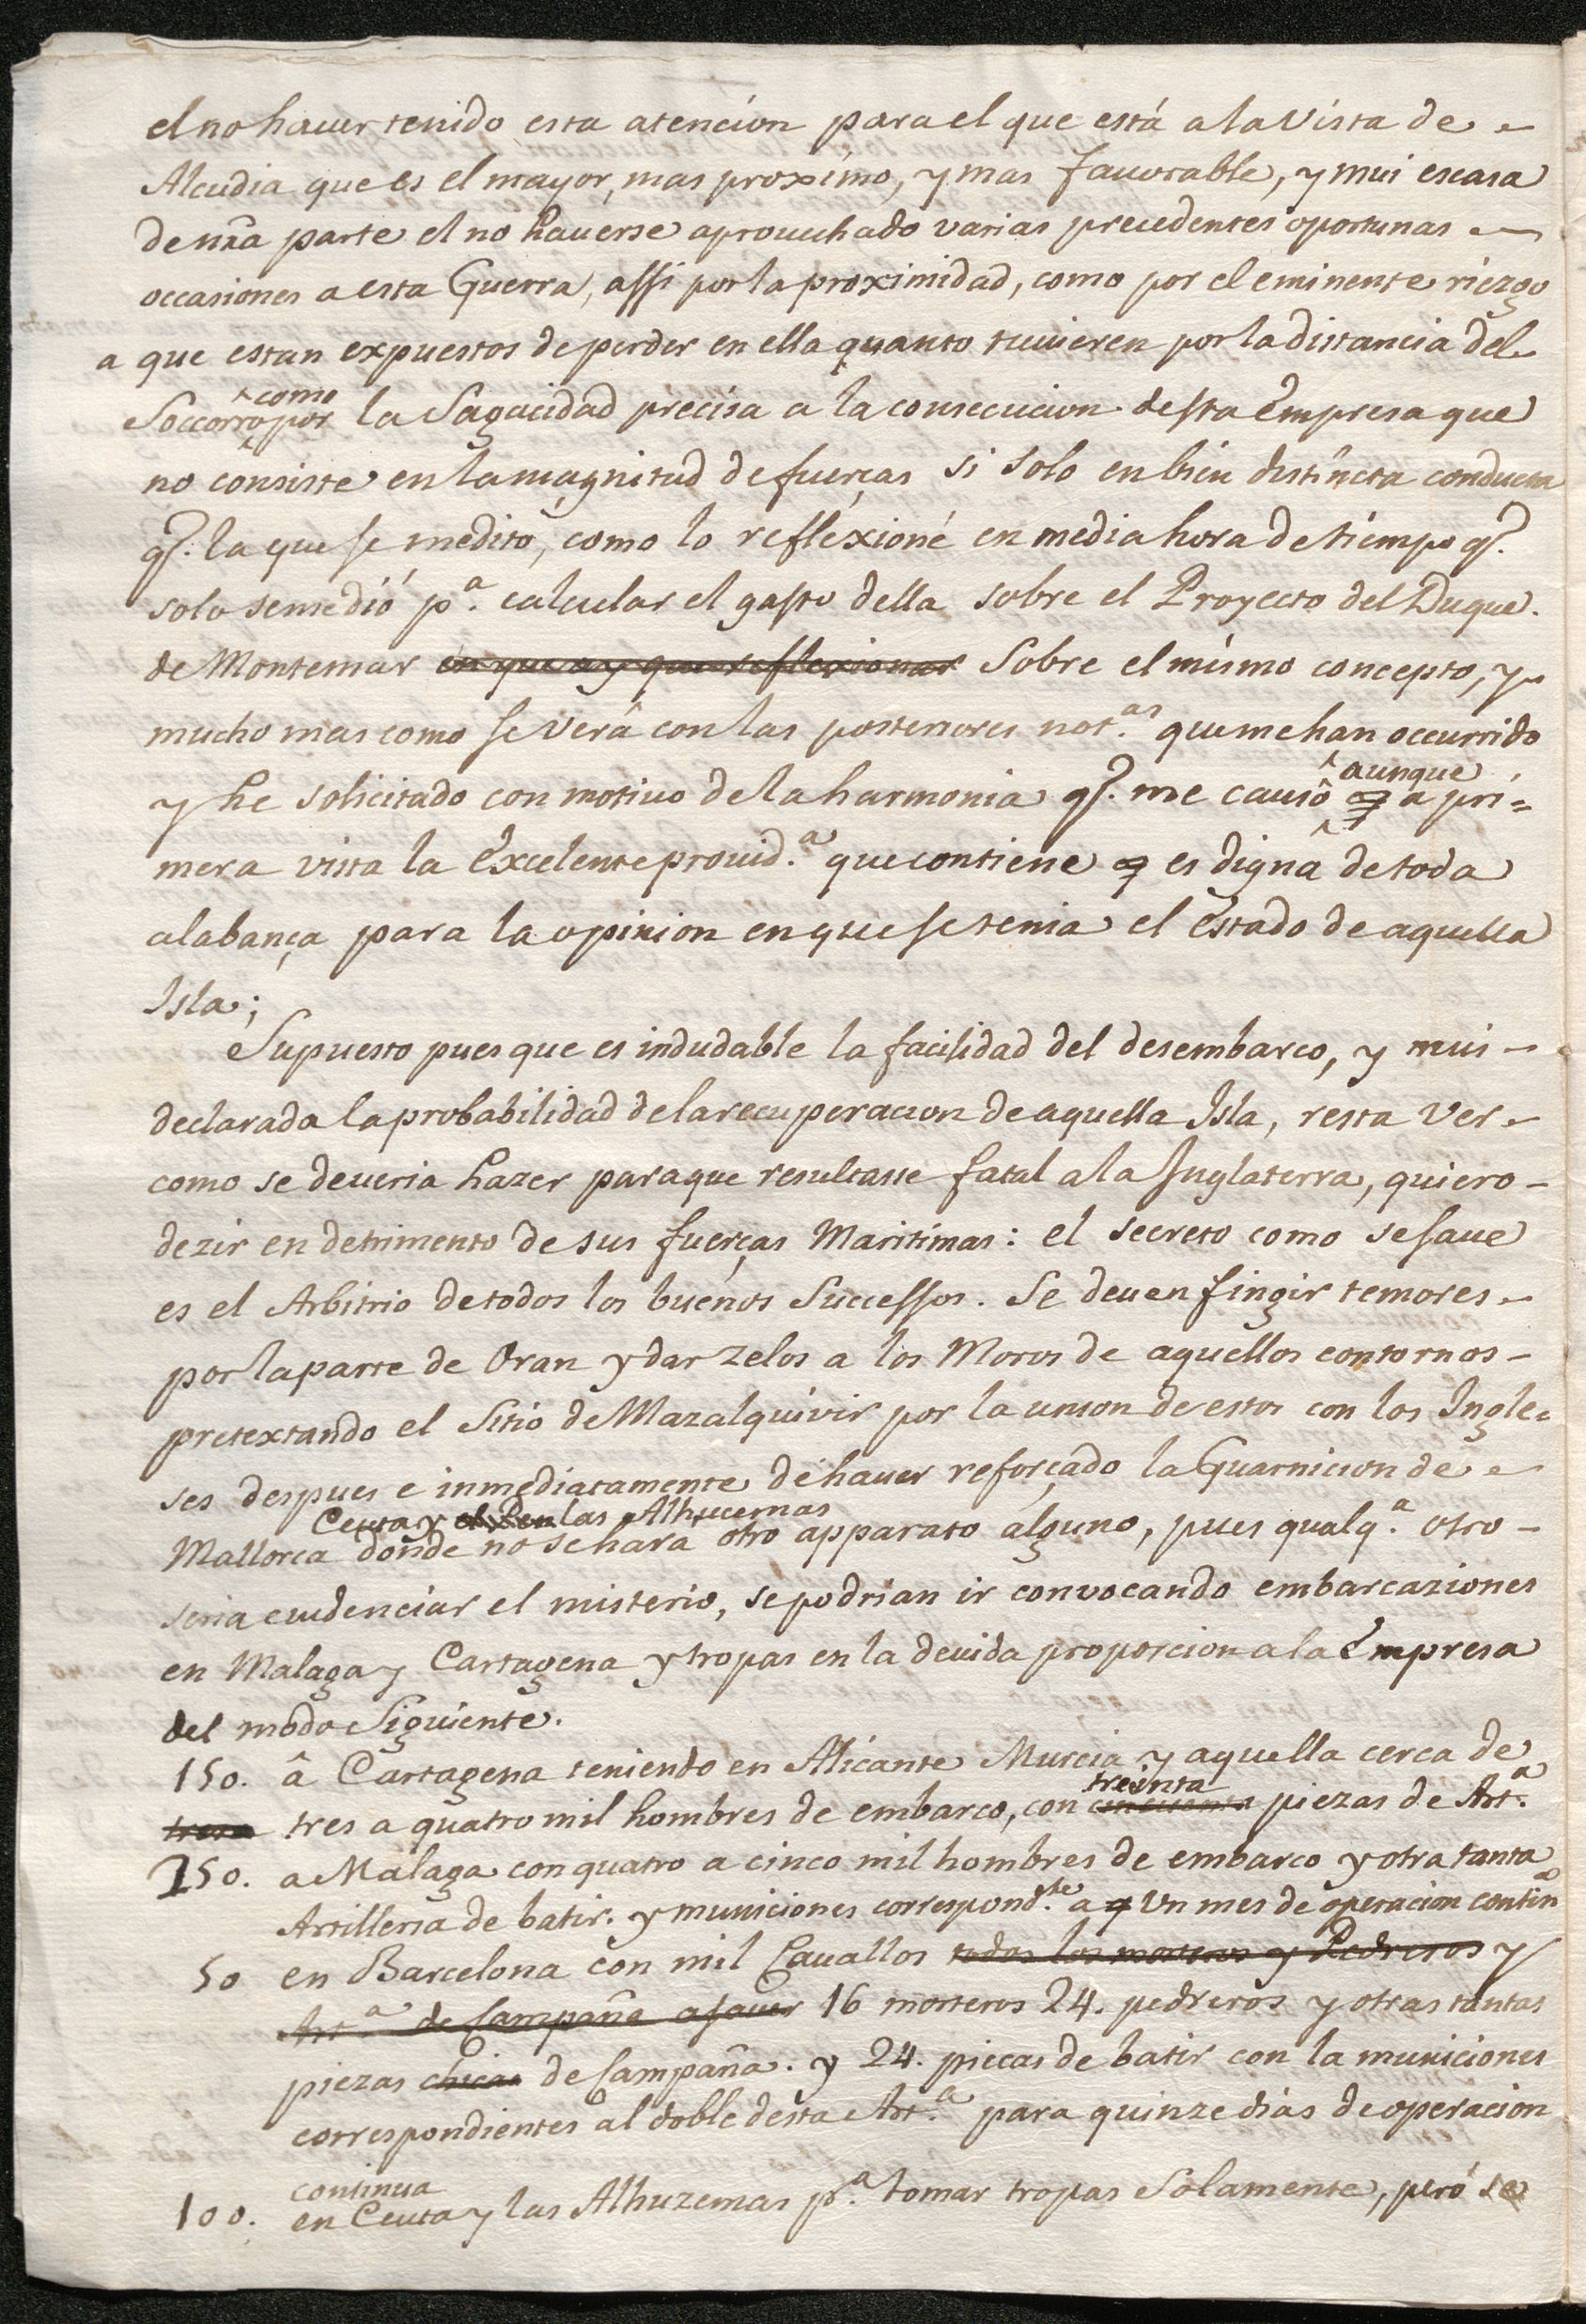 el no hauer tenido esta atencion para el que está a la Vista de
Alcudia que es el mayor, mas proximo, y mas fauorable, y mui escasa
de nra parte el no hauerse aprouechado varias precedentes oportunas
occasiones a esta Guerra, assi por la proximidad, como por el eminente riezgo
a que estan expuestos de perder en ella quanto tuuieren por la distancia del
como
Soccorro por la Sagacidad precisa a la consecucion desta Empresa que
no consiste en la magnitud de fuerças si solo en bien distincta conducta
q.e la que se meditó, como lo reflexioné en media hora de tiempo q.e
solo se me dió p.a calcular el gasto della sobre el Proyecto del Duque.
de Montemar en que ay que reflexionar Sobre el mismo concepto, y
mucho mas como se verá con las posteriores not.as que me han occurrido
aunque
y he solicitado con motiuo de la harmonia q.e me causô q a pri=
mera vista la Excelente prouid.a que contiene q es digna de toda
alabança para la opinion en que se tenia el Estado de aquella
Isla;
Supuesto pues que es indudable la facilidad del desembarco, y mui
declarada la probabilidad de la recuperacion de aquella Isla, resta Ver
como se deueria hazer paraque resultasse fatal a la Inglaterra, quiero
dezir en detrimento de sus fuerças Maritimas: el secreto como se saue
es el Arbitrio de todos los buenos Successos. Se deuen fingir temores
por la parte de Oran y dar zelos a los Moros de aquellos contornos
pretextando el Sitio de Mazalquivir por la union de estos con los Ingle=
ses despues e inmediatamente de hauer reforçado la Guarnicion de
Ceuta y el Peñ las Alhucemas
Mallorca donde no se hara otro apparato alguno, pues qualq.a otro
seria euidenciar el misterio, se podrian ir convocando embarcaziones
en Malaga y Cartagena y tropas en la deuida proporcion a la Empresa
del modo Siguiente.
150. â Cartagena teniendo en Alicante Murcia y aquella cerca de
treinta
tres a quatro mil hombres de embarco, con cincuenta piezas de Art.a
150. a Malaga con quatro a cinco mil hombres de embarco y otra tanta
Artilleria de batir. y municiones correspond.te a q Un mes de operacion contin.a
50 en Barcelona con mil Cauallos todos los morteros y Pedreros y
Art.a de Campaña a sauer 16 morteros 24. pedreros y otras tantas
piezas chicas de Campaña. y 24. piecas de batir con la municiones
correspondientes al doble desta Art.a para quinze dias de operacion
continua
100. en Ceuta y las Alhuzemas p.a tomar tropas Solamente, peró se